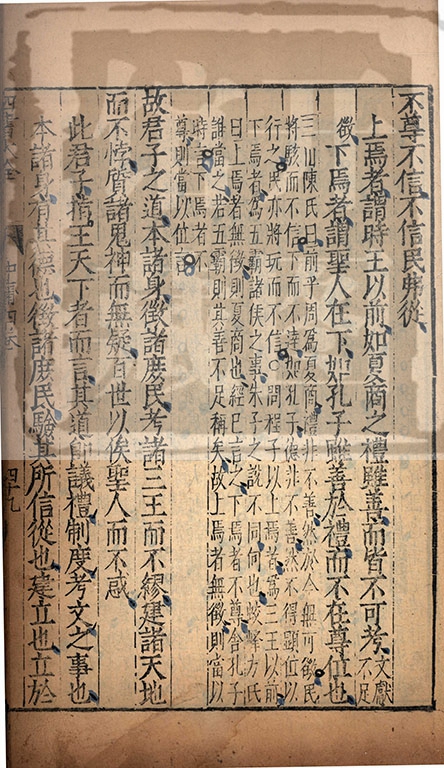 不尊不信不信民弗從
上焉者謂時王以前如夏商之禮雖善而皆不可考文獻不足
徵下焉者謂聖人在下如孔子雖善於禮而不在尊位也
三山陳氏曰前乎周爲夏商禮非不善然於今無可徵民
將駭而不信下而不達如孔子德非不善然不得顯位以
行之民亦將玩而不信○問程子以上焉者爲三王以前
下焉者爲五霸諸侯之事朱子之說不同何也蛟峰方氏
曰上焉者無徵則夏商也經已言之下焉者不尊舍孔子
誰當之若五霸則其善不足稱矣故上焉者無徵則當以
時言下焉者不
尊則當以位言
故君子之道本諸身徵諸庶民考諸三王而不繆建諸天地
而不悖質諸鬼神而無疑百世以俟聖人而不惑
此君子指王天下者而言其道即議禮制度考文之事也
本諸身有其德也徵諸庶民驗其所信從也建立也立於
四十九